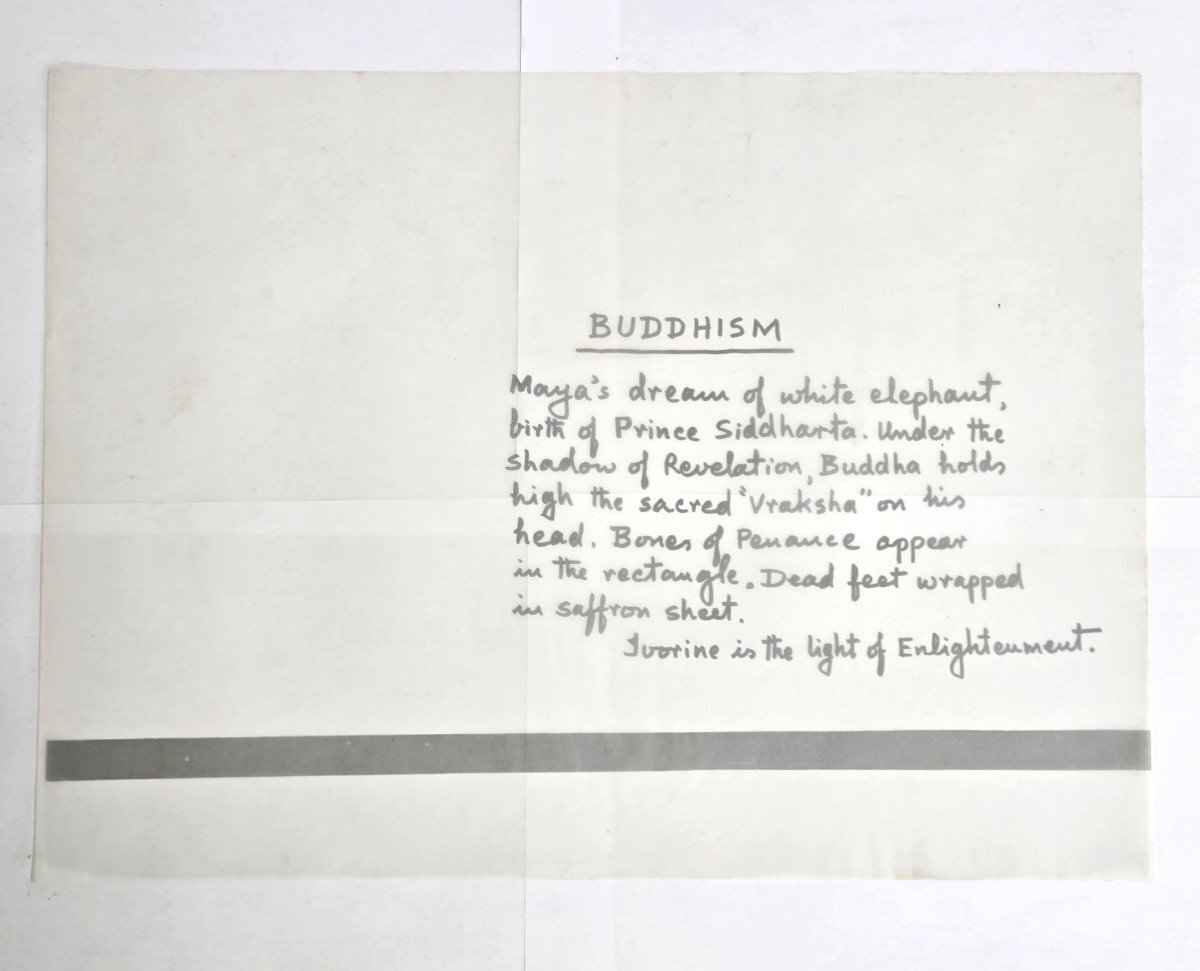 BUDDHISM
Maya's dream of white elephant,
birth of Prince Siddharta. Under the
shadow of Revelation, Buddha holds
high the sacred "Vraksha" on his
head. Bones of Penance appear
in the rectangle. Dead feet wrapped
in saffron sheet.
Ivorine is the light of Enlightenment.